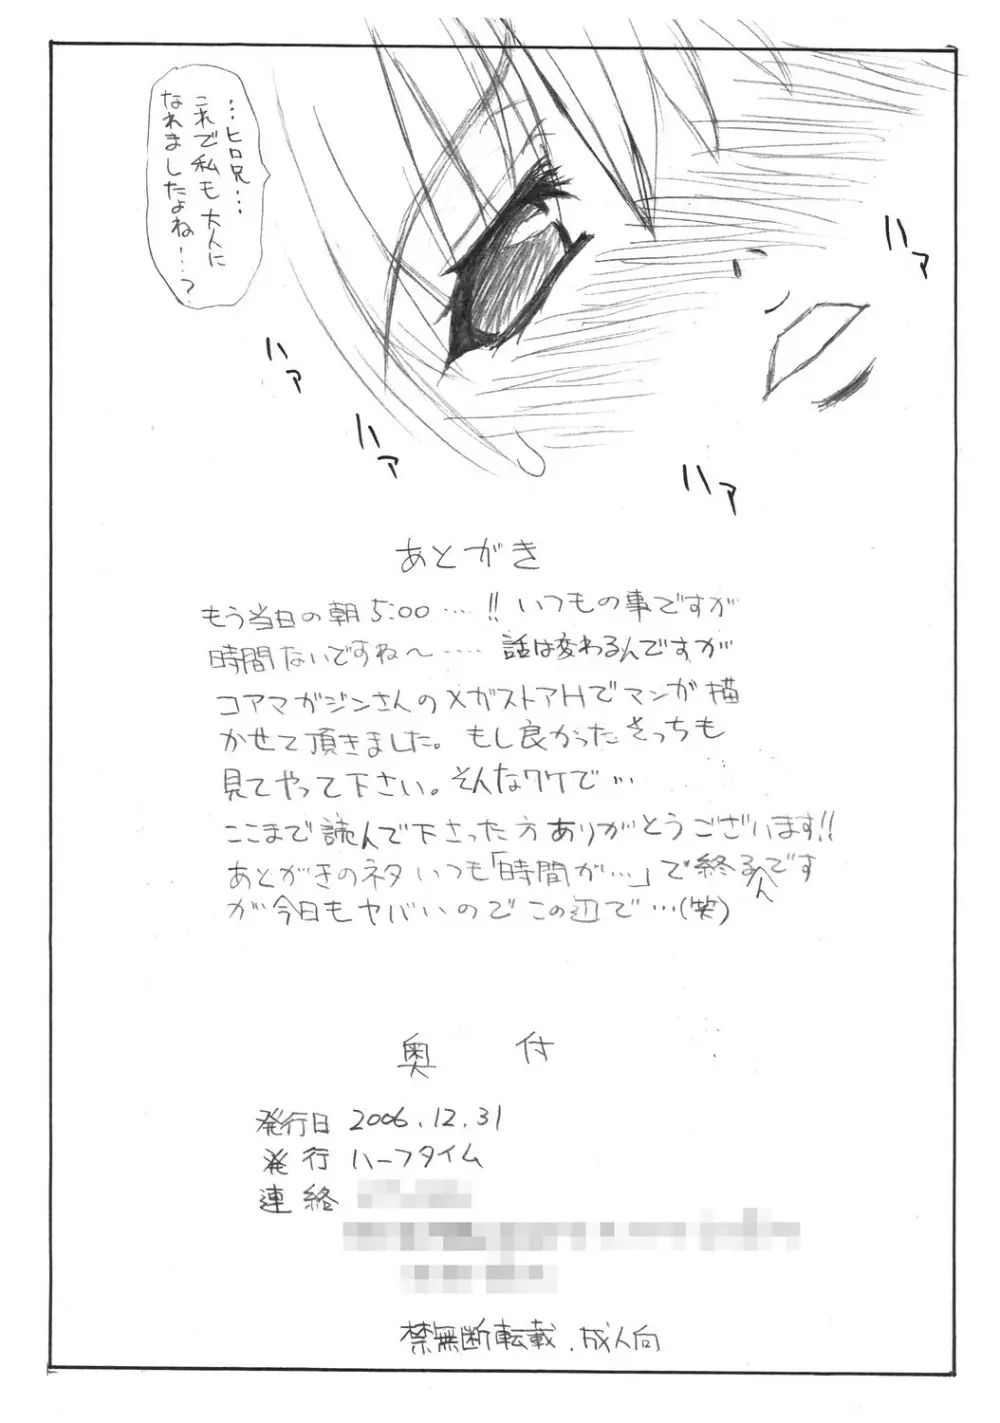 …ヒロ兄…
これで私も大人に
なれましたよね…?
ハァ
ハァ
ハァ
ハァ
あとがき
もう当日の朝5:00…!! いつもの事ですが
時間ないですね〜…… 話は変わるんですが
コアマガジンさんのメガストアHでマンガ描
かせて頂きました。もし良かったらそっちも
見てやって下さい。そんなワケで…
ここまで読んで下さった方ありがとうございます!!
あとがきのネタいつも「時間が…」で終るんです
が今日もヤバいのでこの辺で…(笑)
奥付
発行日 2006.12.31
発行 ハーフタイム
連絡
禁無断転載.成人向